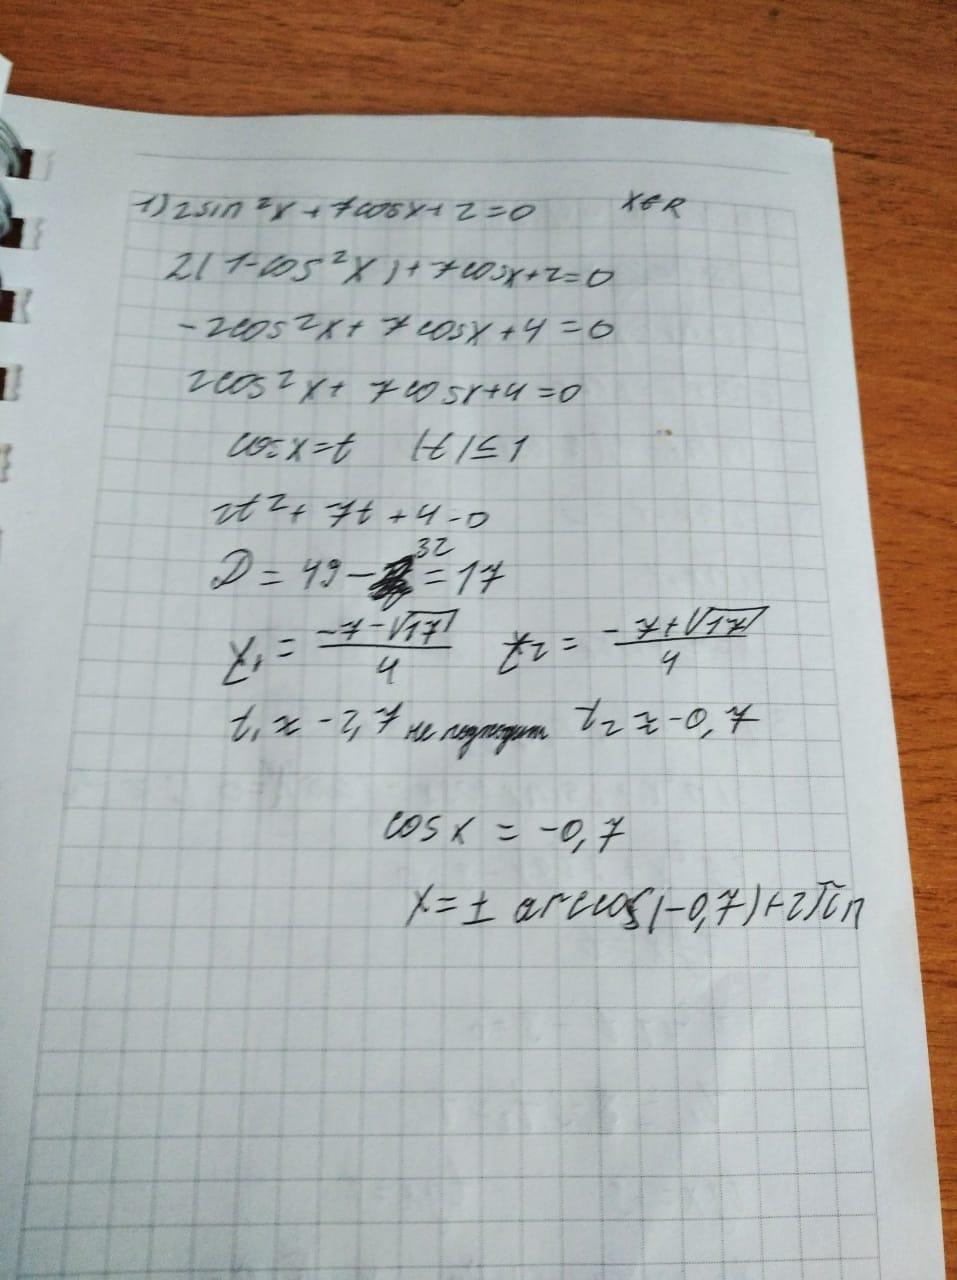 1) 2sin²x + 7cosx + 2 = 0 x∈R
2(1-cos²x) + 7cosx + 2 = 0
-2cos²x + 7cosx + 4 = 0
2cos²x + 7cosx + 4 = 0
cosx = t |t| ≤ 1
2t² + 7t + 4 - 0
D = 49 - 32 = 17
t₁ = (-7-√17)/4 t₂ = (-7+√17)/4
t₁ ≈ -2,7 не подходит t₂ ≈ -0,7
cosx = -0,7
x = ± arccos(-0,7) + 2πn